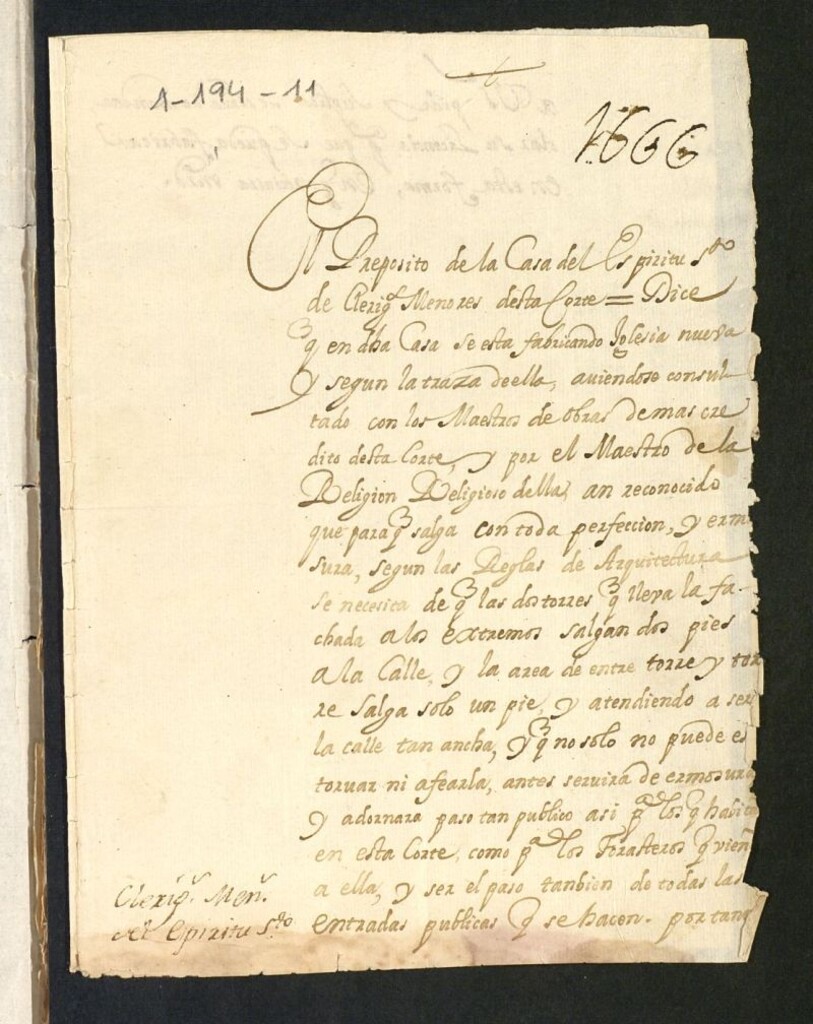 1-194-11
1666
El Preposito de la Casa del Espiritu Sto
de Clerigs Menores desta Corte = Dice
q en dha Casa se esta fabricando Iglesia nueva
y segun la traza de ella, auiendose consul
tado con los Maestros de obras de mas cre
dito desta Corte, y por el Maestro de la
Religion Religioso della, an reconocido
que para q salga con toda perfeccion, y erm
sura, segun las Reglas de Arquitectura
se necesita de q las dos torres q lleva la fa-
chada a los extremos salgan dos pies
a la Calle, y la area de entre torre y tor
re salga solo un pie, y atendiendo a ser
la calle tan ancha, y q no solo no puede es
toruar ni afearla, antes seruira de ermosura
y adornara paso tan publico asi pa los q habita
en esta Corte, como pa los Forasteros q vien
a ella, y ser el paso tanbien de todas las
entradas publicas q se hacen. por tan
Clerigs. Mens.
del Epiritu Sto